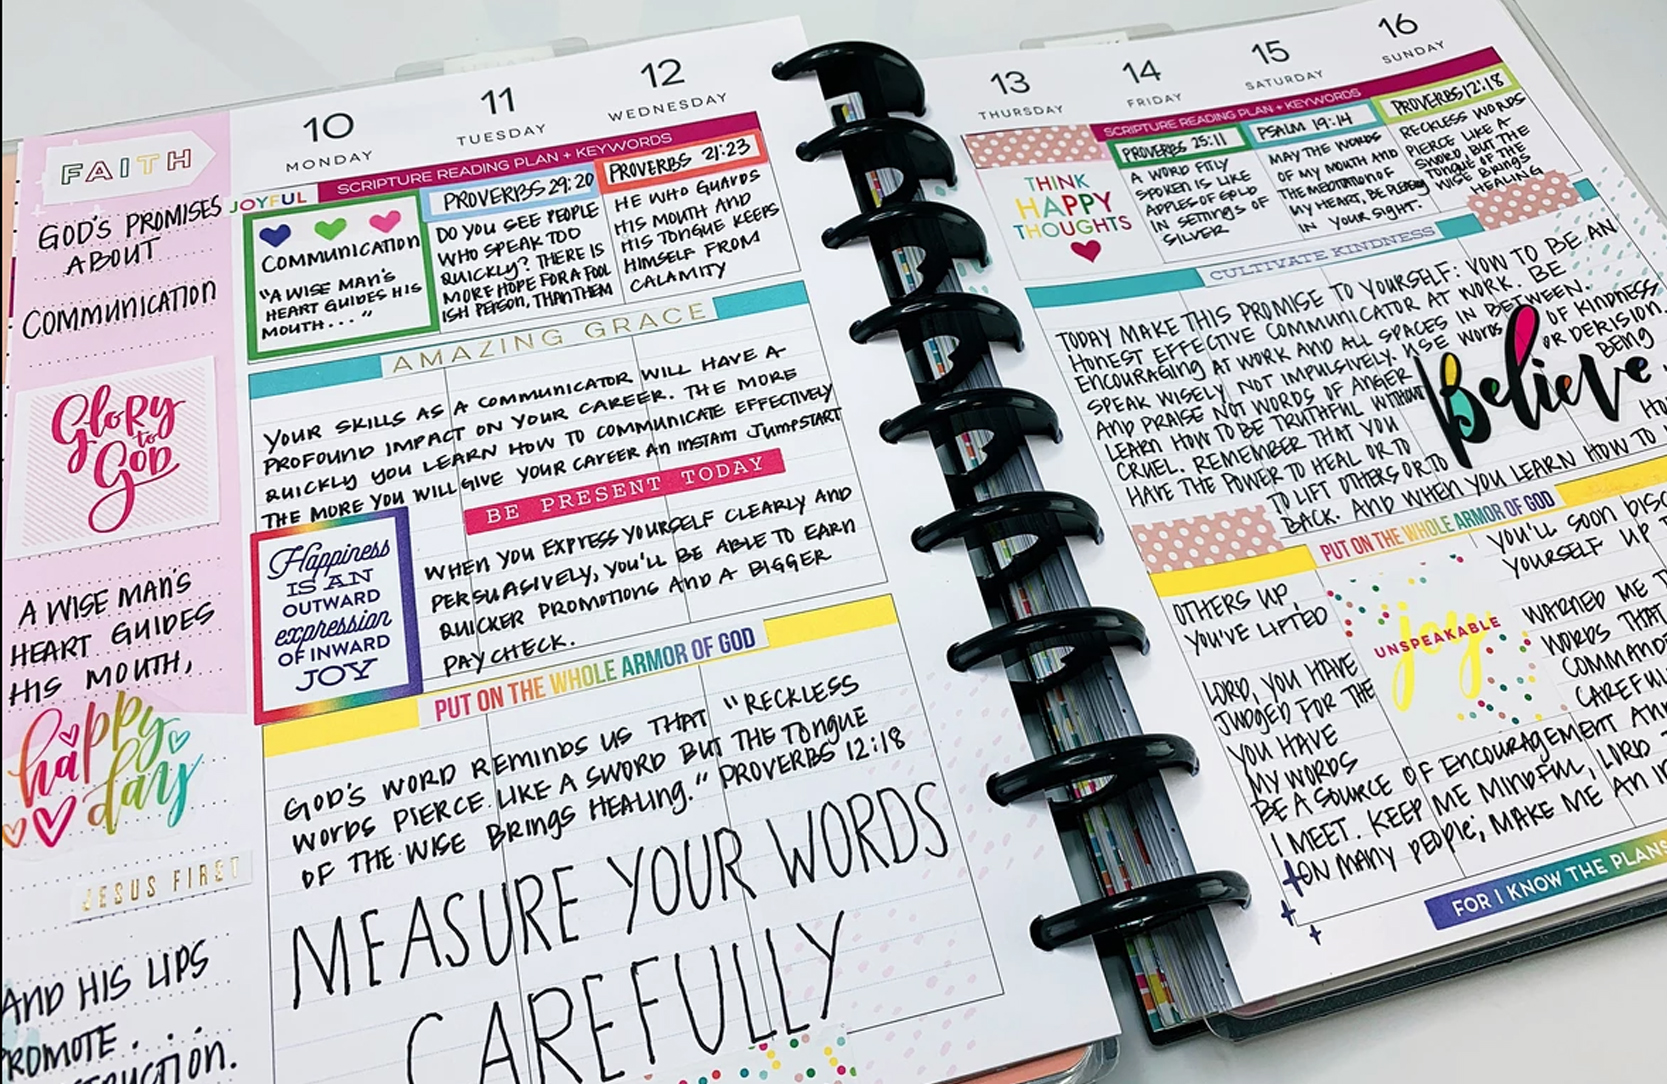 FAITH
GOD'S PROMISES
ABOUT
COMMUNICATION
Glory
to
God
A WISE MAN'S
HEART GUIDES
HIS MOUTH,
happy
day
JESUS FIRST
AND HIS LIPS
PROMOTE . . .
10
MONDAY
11
TUESDAY
12
WEDNESDAY
SCRIPTURE READING PLAN + KEYWORDS
JOYFUL
COMMUNICATION
"A WISE MAN'S
HEART GUIDES HIS
MOUTH..."
PROVERBS 29:20
DO YOU SEE PEOPLE
WHO SPEAK TOO
QUICKLY? THERE IS
MORE HOPE FOR A FOOL
ISH PERSON, THAN THEM
PROVERBS 21:23
HE WHO GUARDS
HIS MOUTH AND
HIS TONGUE KEEPS
HIMSELF FROM
CALAMITY
AMAZING GRACE
YOUR SKILLS AS A COMMUNICATOR WILL HAVE A
PROFOUND IMPACT ON YOUR CAREER. THE MORE
QUICKLY YOU LEARN HOW TO COMMUNICATE EFFECTIVELY
THE MORE YOU WILL GIVE YOUR CAREER AN INSTANT JUMPSTART
BE PRESENT TODAY
Happiness
IS AN
OUTWARD
expression
OF INWARD
JOY
WHEN YOU EXPRESS YOURSELF CLEARLY AND
PERSUASIVELY, YOU'LL BE ABLE TO EARN
QUICKER PROMOTIONS AND A BIGGER
PAYCHECK.
PUT ON THE WHOLE ARMOR OF GOD
GOD'S WORD REMINDS US THAT "RECKLESS
WORDS PIERCE LIKE A SWORD BUT THE TONGUE
OF THE WISE BRINGS HEALING." PROVERBS 12:18
MEASURE YOUR WORDS
CAREFULLY
13
THURSDAY
14
FRIDAY
15
SATURDAY
16
SUNDAY
SCRIPTURE READING PLAN + KEYWORDS
THINK
HAPPY
THOUGHTS
PROVERBS 25:11
A WORD FITLY
SPOKEN IS LIKE
APPLES OF GOLD
IN SETTINGS OF
SILVER
PSALM 19:14
MAY THE WORDS
OF MY MOUTH AND
THE MEDITATION OF
MY HEART, BE PLEASING
IN YOUR SIGHT.
PROVERBS 12:18
RECKLESS WORDS
PIERCE LIKE A
SWORD, BUT THE
TONGUE OF THE
WISE BRINGS
HEALING
CULTIVATE KINDNESS
TODAY MAKE THIS PROMISE TO YOURSELF: VOW TO BE AN
HONEST EFFECTIVE COMMUNICATOR AT WORK. BE
ENCOURAGING AT WORK AND ALL SPACES IN BETWEEN.
SPEAK WISELY, NOT IMPULSIVELY. USE WORDS OF KINDNESS
AND PRAISE NOT WORDS OF ANGER OR DERISION.
LEARN HOW TO BE TRUTHFUL WITHOUT BEING
CRUEL. REMEMBER THAT YOU
HAVE THE POWER TO HEAL OR TO
TO LIFT OTHERS OR TO
BACK. AND WHEN YOU LEARN HOW TO
Believe
PUT ON THE WHOLE ARMOR OF GOD
OTHERS UP,
YOU'VE LIFTED
YOU'LL SOON
YOURSELF UP
UNSPEAKABLE
joy
LORD, YOU HAVE WARNED ME
JUDGED FOR THE WORDS THAT
YOU HAVE
MY WORDS
BE A SOURCE OF ENCOURAGEMENT
I MEET. KEEP ME MINDFUL, LORD
ON MANY PEOPLE; MAKE ME AN
FOR I KNOW THE PLANS